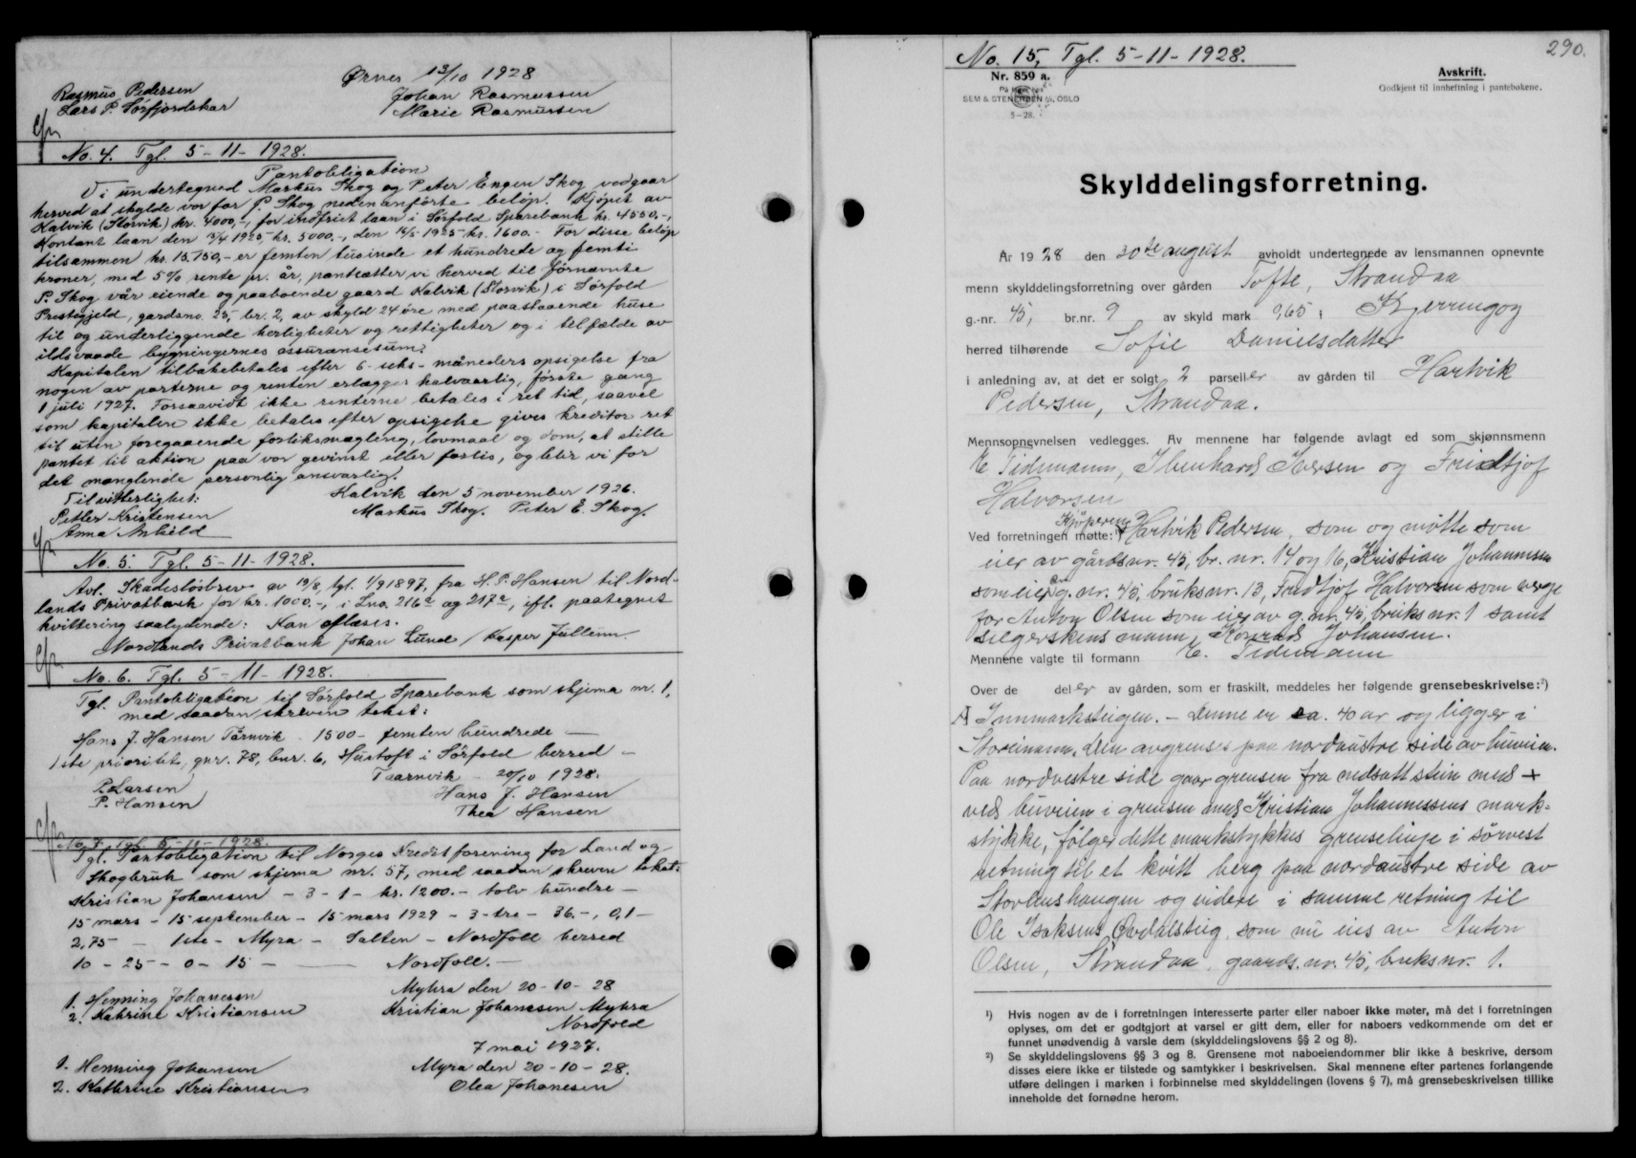 Ørnes 13/10 1928
Rasmus Pedersen
Johan Rasmussen
Lars P. Sørfjordskar
Marie Rasmussen
No. 4. Tgl. 5-11-1928.
Pantobligation
Vi undertegned Markus Skog og Peter Engen Skog vedgaar
herved at skylde vor far P. Skog nedenanførte beløp. Kjøpet av
Kalvik (Storvik) kr. 4000,-, for indfriet laan i Sørfold Sparebank kr. 4550,-,
Kontant laan den 15/4 1925 kr. 5000,-, den 14/5-1925 kr. 1600.- For disse beløp
tilsammen kr. 15.750,- er femten tusinde et hundrede og femti
kroner, med 5% rente pr. år, pantsætter vi herved til førnævnte
P. Skog vår eiende og paaboende gaard Kalvik (Storvik) i Sørfold
Prestegjeld, gardsno. 25, br. 2, av skyld 24 øre med paastaaende huse
til og underliggende herligheter og rettigheter og i tilfælde av
ildsvaade bygningernes assuransesum.
Kapitalen tilbakebetales efter 6-seks-måneders opsigelse fra
nogen av parterne og renten erlægges halvaarlig, første gang
1 juli 1927. Forsaavidt ikke renterne betales i ret tid, saavel
som kapitalen ikke betales efter opsigelse gives kreditor ret
til uten foregaaende forliksmægling, lovmaal og dom, at stille
pantet til aktion paa vor gevinst eller forlis, og blir vi for
det manglende personlig ansvarlig.
Kalvik den 5 november 1926.
Til vitterlighet:
Markus Skog. Peter E. Skog.
Petter Kristensen
Anna Anhild
No. 5. Tgl. 5-11-1928.
Avl. Skadesløsbrev av 19/8, tgl. 1/9 1897, fra H. P. Hansen til Nord-
lands Privatbank for kr. 1000.-, i Lno. 216a og 217a, ifl. paategnet
kvittering saalydende: Kan aflæses.
Nordlands Privatbank Johan Lund / Kasper Jullum
No. 6. Tgl. 5-11-1928.
Tgl. Pantobligation til Sørfold Sparebank som skjema nr. 1,
med saadan skreven tekst:
Hans J. Hansen Tårnvik 1500- femten hundrede —
1ste prioritet, gnr. 78, bnr. 6, Hustoft i Sørfold herred —
Taarnvik - 20/10 1928.
P. Larsen
Hans J. Hansen
P. Hansen
Thea Hansen
No. 7. Tgl. 5-11-1928.
Tgl. Pantobligation til Norges Kreditforening for Land og
Skogbruk som skjema nr. 57, med saadan skreven tekst:
Kristian Johansen - 3 - 1 - kr. 1200.- tolv hundre -
15 mars - 15 september - 15 mars 1929 - 3-tre - 36.-, 0,1 -
2,75 - 1ste - Myra - Salten - Nordfold herred
10 - 25 - 0 - 15 - Nordfold.-
Myhra den 20-10-28
1. Henning Johanesen
Kristian Johanesen Myhra
2. Kathrine Kristiansen
Nordfold
7 mai 1927.
1. Henning Johansen
Myra den 20-10-28.
2. Kathrine Kristiansen
Olea Johanesen
No. 15, Tgl. 5-11-1928.
290.
Nr. 859 a.
SEM & STENERSEN A/S, OSLO
5-28.
Avskrift.
Godkjent til innheftning i pantebøkene.
Skylddelingsforretning.
År 1928 den 30te august avholdt undertegnede av lensmannen opnevnte
menn skylddelingsforretning over gården Tofte, Strandaa
g.-nr. 45, br.nr. 9 av skyld mark 0,65 i Kjerringøy
herred tilhørende Sofie Danielsdatter
i anledning av, at det er solgt 2 parseller av gården til Hartvik
Pedersen, Strandaa.
Mennsopnevnelsen vedlegges. Av mennene har følgende avlagt ed som skjønnsmenn
E. Tidemann, Ibenhard Iversen og Fridtjof
Halvorsen
Ved forretningen møtte:¹) Kjøperen Hartvik Pedersen, som og møtte som
eier av gårdsnr. 45, br. nr. 14 og 16, Kristian Johannessen
som eier g. nr. 45, bruksnr. 13, Fridtjof Halvorsen som verge
for Anton Olsen som eier av g. nr. 45, bruksnr. 1 samt
selgerskens mann, Konrad Johansen.
Mennene valgte til formann E. Tidemann
Over de deler av gården, som er fraskilt, meddeles her følgende grensebeskrivelse:²)
A Innmarksteigen. - Denne er ca. 40 ar og ligger i
Storeinmm, den avgrenses paa nordaustre side av buveien.
Paa nordvestre side gaar grensen fra nedsatt stein med +
ved buveien i grensen med Kristian Johannessens mark-
stykke, følger dette markstykkes grenselinje i sørvest
retning til et kvitt berg paa nordaustre side av
Stovlushaugen og videre i samme retning til
Ole Isaksens Øvdalsteig, som nu eies av Anton
Olsen, Strandaa, gaards. nr. 45, bruksnr. 1.
¹) Hvis nogen av de i forretningen interesserte parter eller naboer ikke møter, må det i forretningen
oplyses, om det er godtgjort at varsel er gitt dem, eller for naboers vedkommende om det er
funnet unødvendig å varsle dem (skylddelingslovens §§ 2 og 8).
²) Se skylddelingslovens §§ 3 og 8. Grensene mot naboeiendommer blir ikke å beskrive, dersom
disses eiere ikke er tilstede og samtykker i beskrivelsen. Skal mennene efter partenes forlangende
utføre delingen i marken i forbinnelse med skylddelingen (lovens § 7), må grensebeskrivelsen tillike
inneholde det fornødne herom.